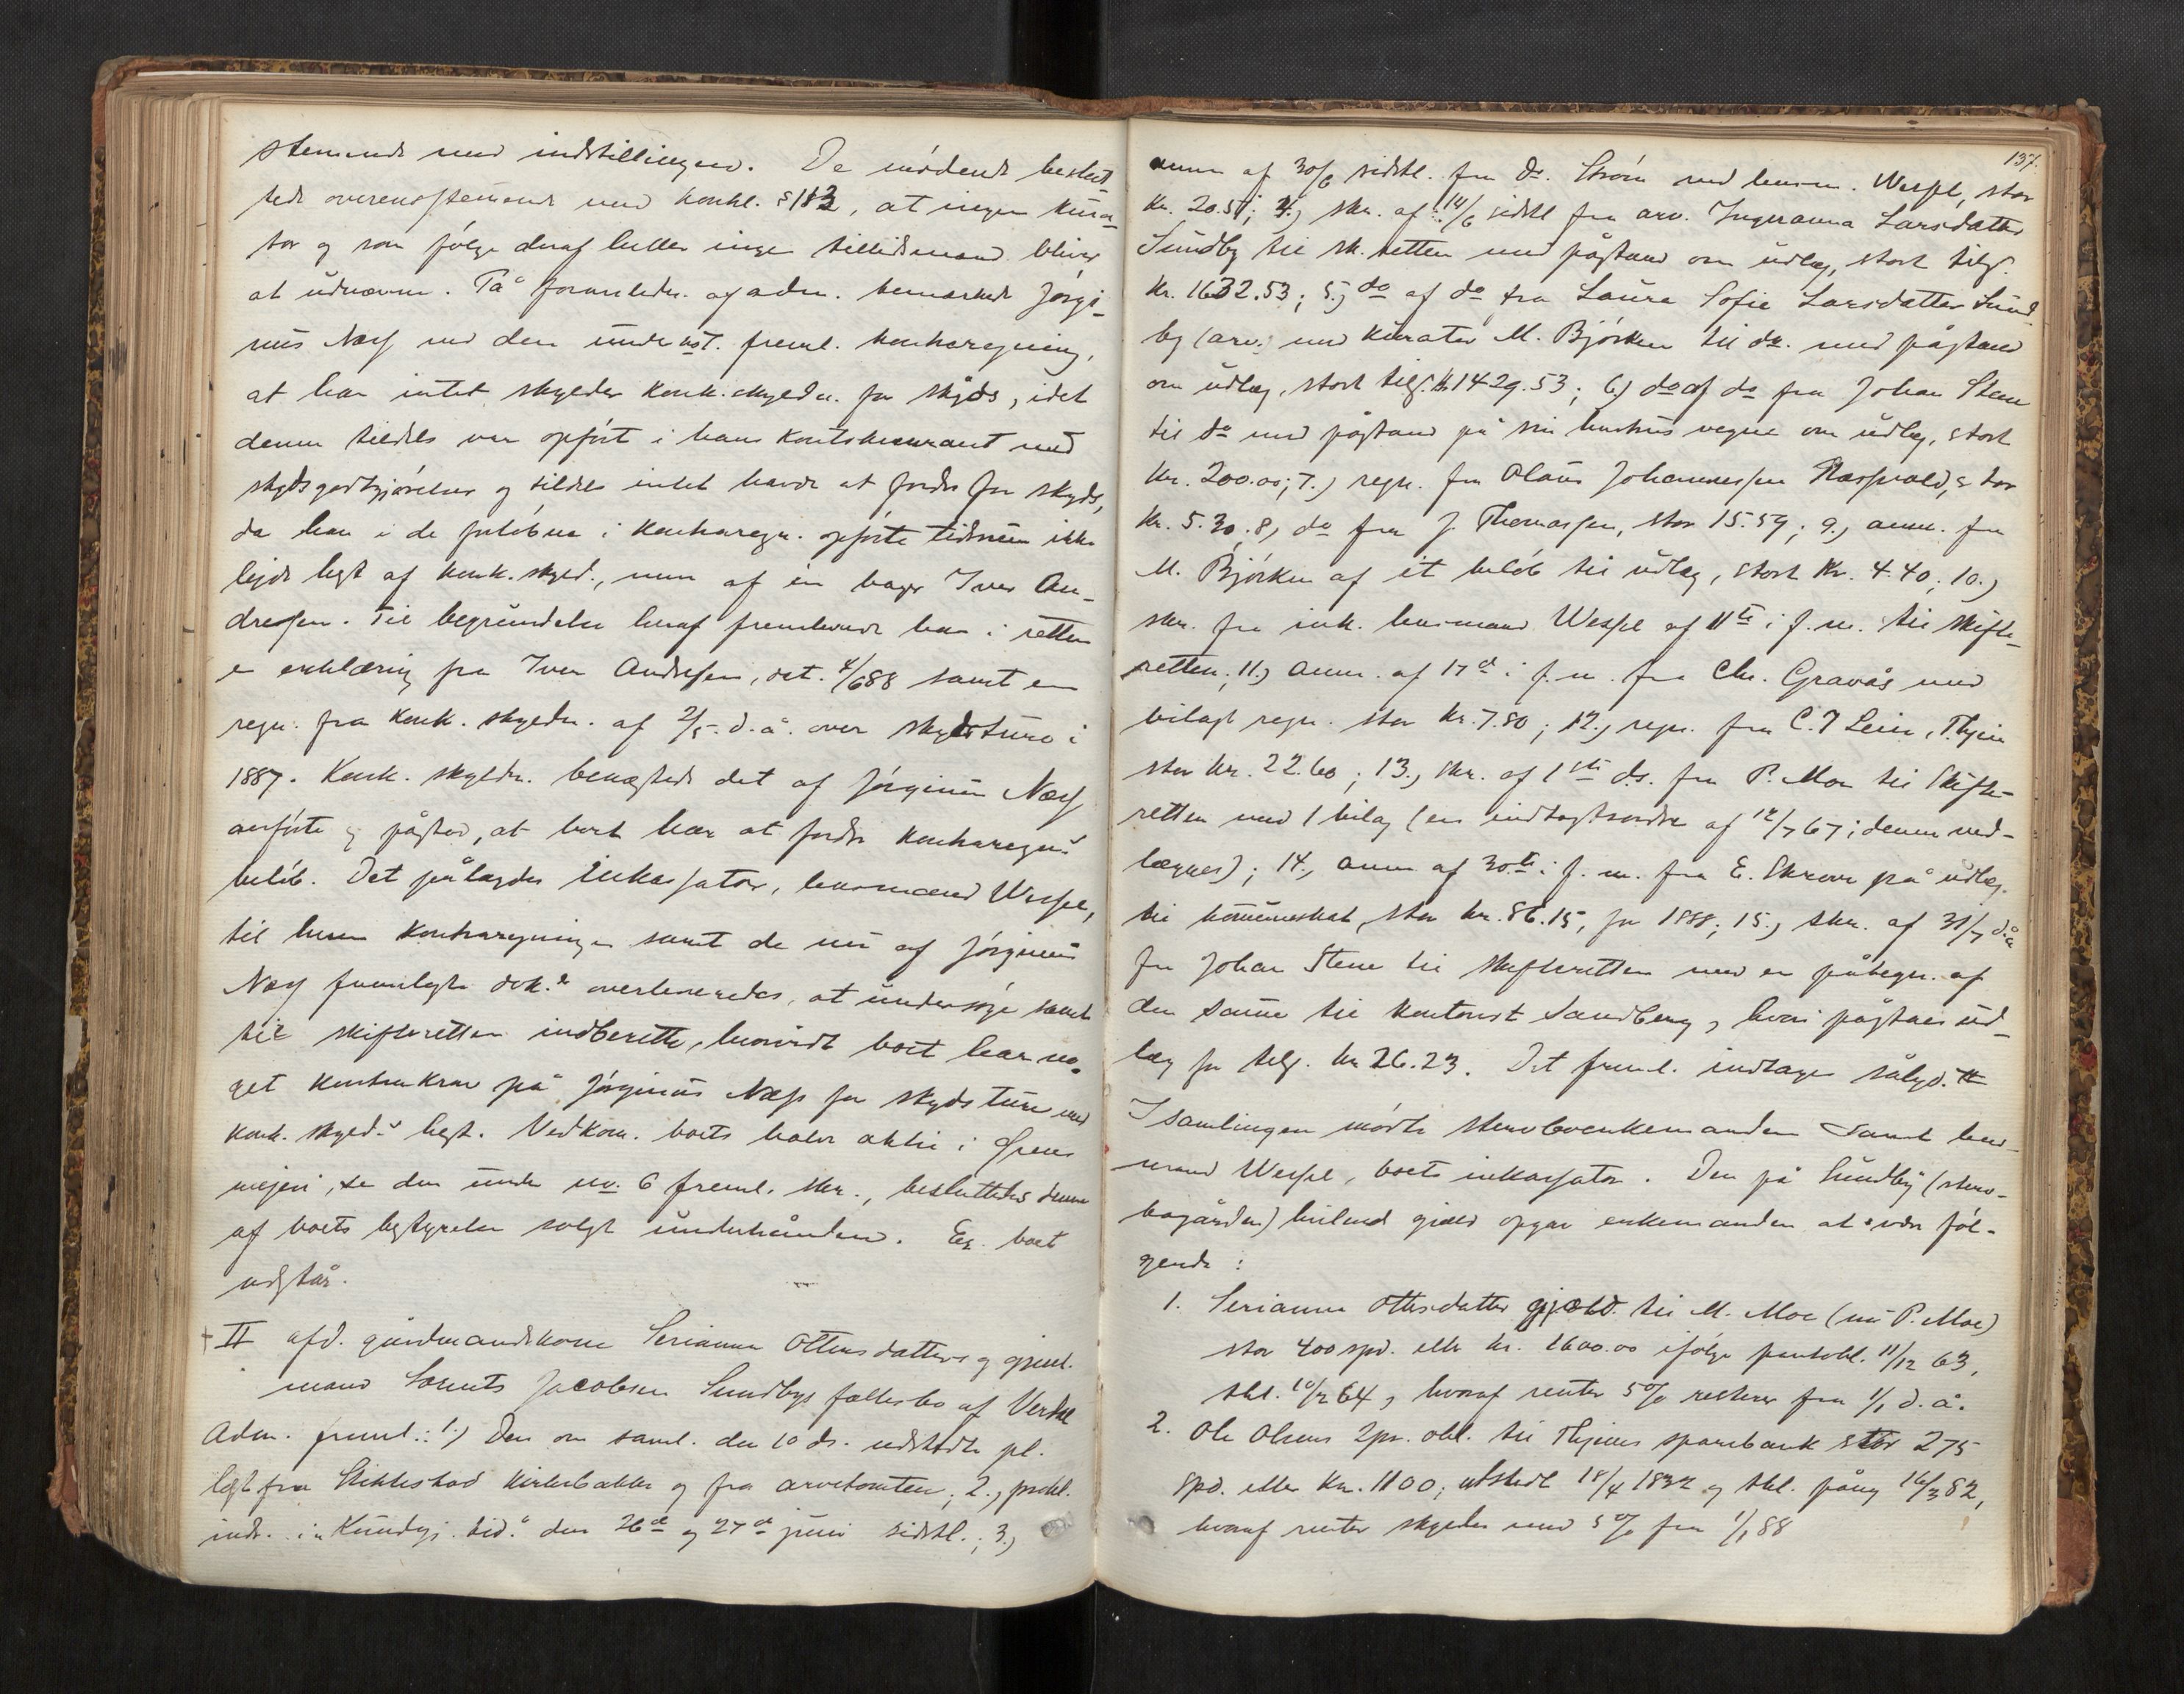 stemende med indstillingen. De mødende beslut-
tede overensstemmende med konkl. §183, at ingen kura-
tor og som følge deraf heller ingen tillidsmand bliver
at udnævne. På formuleder. af adm. bemærkede Jørgi-
nus Næss ved den under nr 7. freml. kontraregning,
at han intet skylder konk.skyldn. for skyds, idet
denne tildels var opført i hans kontokurant med
skydsgodtgjørelser og tildels intet havde at fordre for skyds,
da han i de forløbne i kontraregn. opførte tidsrum ikke
lejde hest af konk.skyld., men af en bager Iver An-
dresen. Til begrundelse heraf fremlevede han i retten
en erklæring fra Iver Andresen, dat. 4/6 88 samt en
regn. fra konk. skyldn. af 2/5 d.å. over skydsture i
1887. Konk. skyldn. benægtede det af Jørginus Næss
anførte og påstod, at boet har at fordre kontraregns
beløb. Det pålagdes inkassator, lensmand Wessel,
til hvem kontraregningen samt de nu af Jørginus
Næss fremlagte dok.r overleveredes, at undersøge samt
til skifteretten indberette, hvorvidt boet har no-
get kontrakrav på Jørginus Næss for skydsture med
konk. skyld.s hest. Vedkom. boets halve aktie i Ørens
mejeri, se den under no. 6 freml. skr., besluttedes denne
af boets bestyrelse solgt underhånden. Ex. boet
udstår.
II afd. gårdmandskone Serianna Ottersdatters og gjenl.
mand Lornts Jacobsen Sundbys fællesbo af Verdal
Adm. freml.: 1.) Den om saml. den 10 ds. udstedte pl.
læst fra Stiklestad kirkebakke og fra arvetomten; 2.) prokl.
indr. i "Kundgj. tid." den 26de og 27de juni sidstl.; 3.)
137.
anm af 30/6 sidstl. fra Dr. Strøm ved lensm. Wessel, stor
Kr. 20.51; 4.) skr. af 14/6 sidstl fra arv. Ingeranna Larsdatter
Sundby til sk.retten med påstand om udlæg, stort tils.
Kr. 1632.53; 5.) do af do fra Laura Sofie Larsdatter Sund-
by (arv.) med kurator M. Bjørken til do. med påstand
om udlæg, stort tils. kr 1429.53; 6.) do af do fra Johan Stene
til do med påstand på sin hustrus vegne om udlæg, stort
Kr. 200.00; 7.) regn. fra Olaus Johannessen Næssvald, stor
Kr. 5.30; 8.) do fra J. Thomassen, stor 15.59; 9.) anm. fra
M. Bjørken af et beløb til udlæg, stort Kr. 4.40; 10.)
skr. fra ink. lensmand Wessel af 11te i f.m. til skifte-
retten; 11.) anm. af 17de i f.m. fra Chr. Gravås med
bilagt regn. stor kr. 7.80; 12.) regn. fra C. J Lein, Thjeim
stor kr. 22.60; 13.) skr. af 1ste ds. fra P. Moe til Skifte-
retten med 1 bilag (en indtægtsordre af 12/7 67; denne ved-
lægges); 14.) anm af 30te i f.m. fra E. Skrove på udlæg
til kommuneskat, stor kr. 86.15, for 1888; 15.) skr. af 31/7 d.å
fra Johan Stene til skifteretten med en påtegn. af
den samme til kontorist Sandberg, hvori påstaaes ud-
læg for tils. kr 26.23. Det freml. indtages sålyd. #
I samlingen mødte stervboenkemanden samt lens-
mand Wessel, boets inkassator. Den på Sundby (sterv-
bogården) hvilende gjæld opgav enkemanden at være føl-
gende:
1. Serianna Ottersdatter gjæld. til M. Moe (nu P. Moe)
stor 400 spd. eller kr. 1600.00 ifølge pantobl. 11/12 63,
thl. 10/2 64, hvoraf renter 5% resterer fra 1/1 d.å.
2. Ole Olsens 2pr. obl. til Thjems sparebank stor 275
Spd. eller Kr. 1100; udstedt 18/4 1832 og thl. påny 16/3 82,
hvoraf renter skyldes med 5% fra 1/1 88